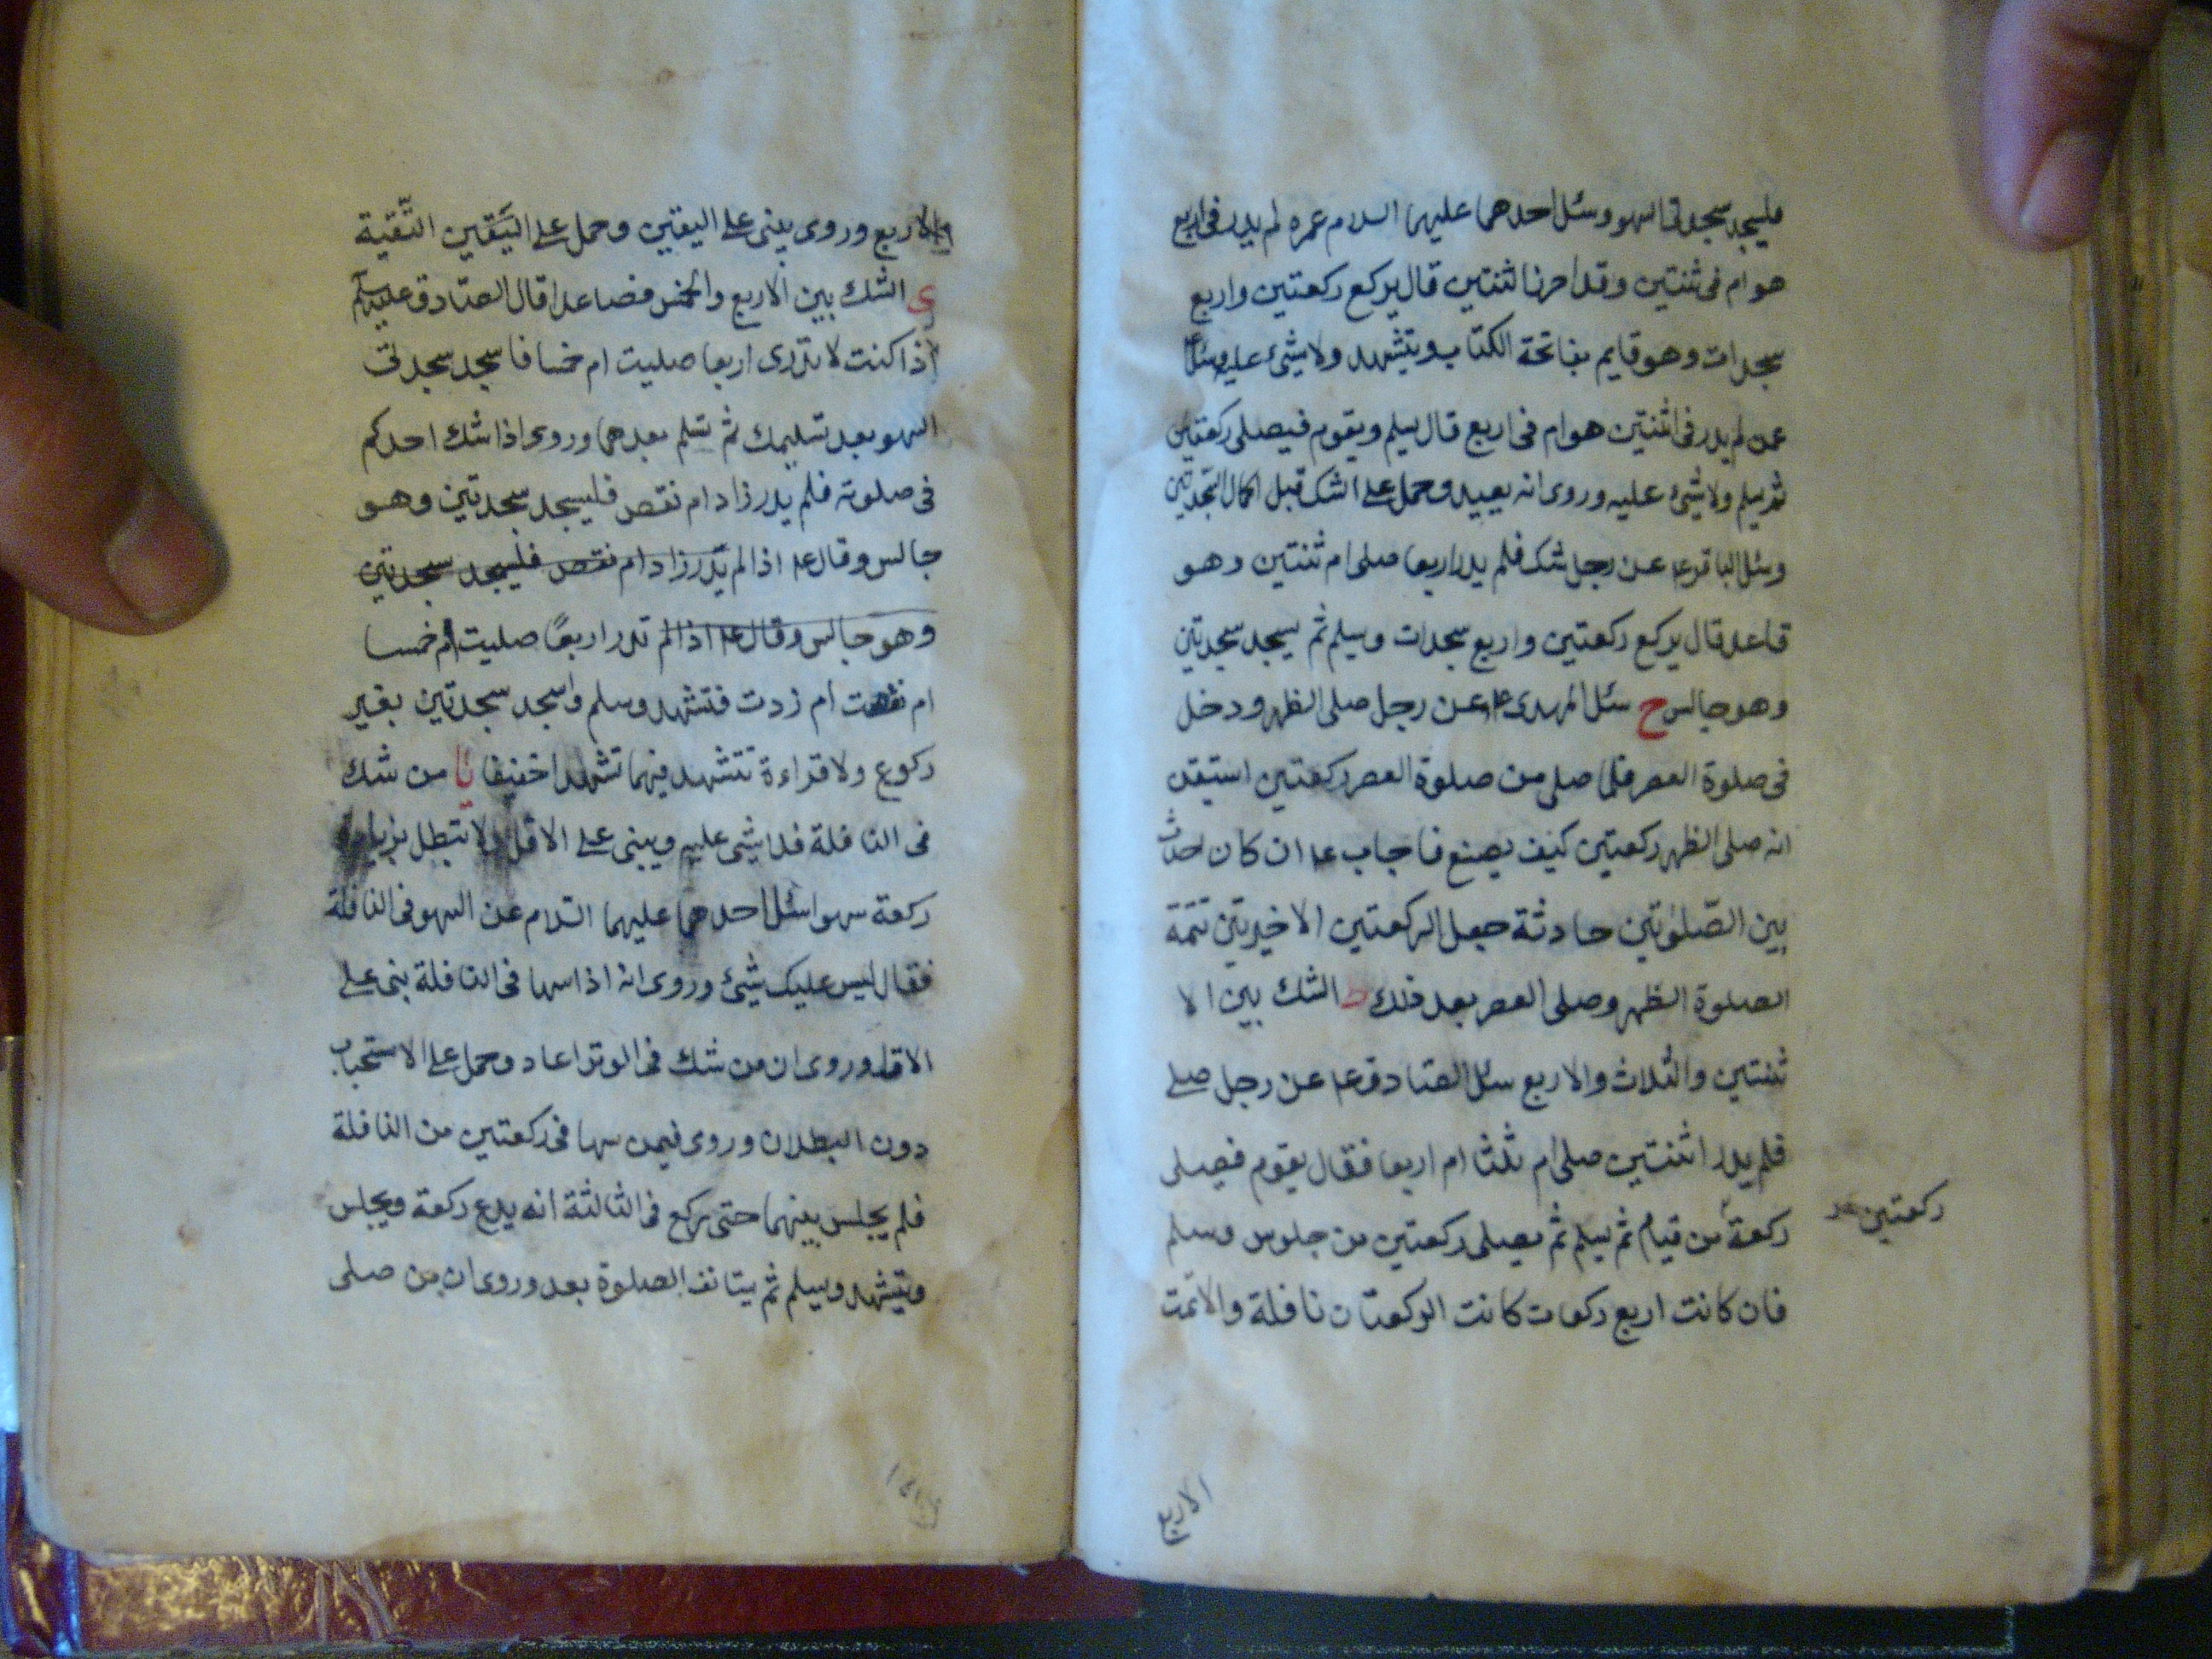 فليسجد سجدتي السهو وسئل احدهما عليهما السلام عمن لم يدر في اربع
هو ام في ثنتين وقد احرز الثنتين قال يركع ركعتين واربع
سجدات وهو قايم بفاتحة الكتاب ويتشهد ولا شئ عليه وسئل
عمن لم يدر في اثنتين هو ام في اربع قال يسلم ويقوم فيصلى ركعتين
ثم يسلم ولا شئ عليه وروى انه يعيد وحمل على الشك قبل اكمال السجدتين
وسئل الباقر ع عن رجل شك فلم يدر اربعا صلى ام ثنتين وهو
قاعد قال يركع ركعتين واربع سجدات ويسلم ثم يسجد سجدتين
وهو جالس ح سئل المهدى ع عن رجل صلى الظهر ودخل
فى صلوة العصر فلما صلى من صلوة العصر ركعتين استيقن
انه صلى الظهر ركعتين كيف يصنع فاجاب ع ان كان احدث
بين الصّلوتين حادثة جعل الركعتين الاخيرتين تتمة
الصلوة الظهر وصلى العصر بعد ذلك ط الشك بين الا
ثنتين والثلاث والاربع سئل الصادق ع عن رجل صلى
فلم يدر اثنتين صلى ام ثلثا ام اربعا فقال يقوم فيصلى
ركعة من قيام ثم يسلم ثم يصلى ركعتين من جلوس ويسلم
ركعتين
فان كانت اربع ركعات كانت الركعتان نافلة والا تمت
الاربع
الاربع وروى يبنى على اليقين وحمل على اليَقين التّقية
ى الشك بين الاربع والخمس فصاعدا قال الصادق عليه السلم
اذا كنت لا تدرى اربعا صليت ام خمسا فاسجد سجدتى
السهو بعد تسليمك ثم تسلم بعدهما وروى اذا شك احدكم
فى صلوته فلم يدر زاد ام نقص فليسجد سجدتين وهو
جالس وقال ع اذا لم يدر زاد ام نقص فليسجد سجدتين
وهو جالس وقال ع اذا لم تدر اربعًا صليت ام خمسا
ام نقصت ام زدت فتشهد وسلم واسجد سجدتين بغير
ركوع ولا قراءة تتشهد فيهما تشهدا خفيفا يا من شك
فى النافلة فلا شئ عليه ويبنى على الاقل ولا تبطل بزيادة
ركعة سهوا سئل احدهما عليهما السلام عن السهو فى النافلة
فقال ليس عليك شئ وروى انه اذا سها فى النافلة بنى على
الاقل وروى ان من شك فى الوتر اعاد وحمل على الاستحباب
دون البطلان وروى فيمن سها فى ركعتين من النافلة
فلم يجلس بينهما حتى يركع فى الثالثة انه يدع ركعة ويجلس
ويتشهد ويسلم ثم يستانف الصلوة بعد وروى ان من صلى